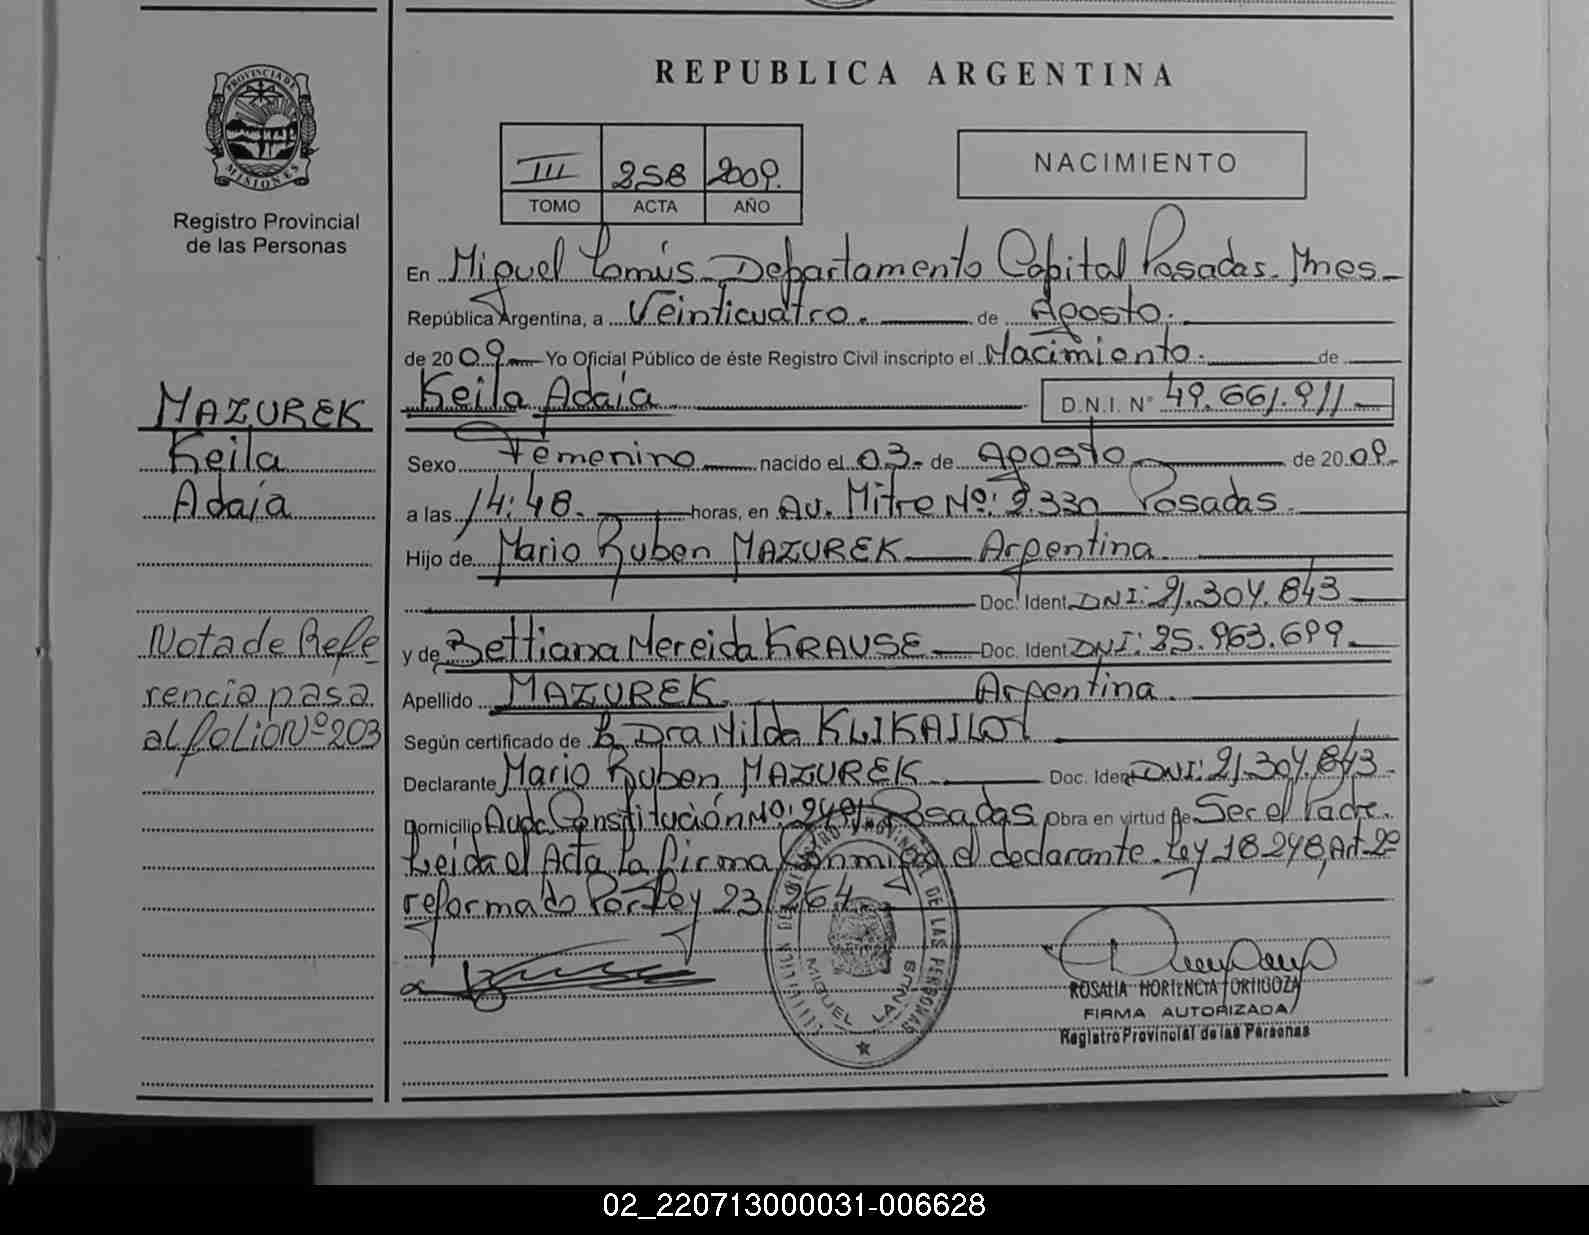 REPUBLICA ARGENTINA
PROVINCIA DE
MISIONES
Registro Provincial
de las Personas
III 258 2009.
TOMO ACTA AÑO
NACIMIENTO
En Miguel Lanús - Departamento Capital Posadas - Mnes -
República Argentina, a Veinticuatro. de Agosto.
de 2009 Yo Oficial Público de éste Registro Civil inscripto el Nacimiento. de
Keila Adaia D.N.I. N° 49.661.911
Sexo Femenino nacido el 03. de Agosto de 2009.
a las 14:48. horas, en Av. Mitre Nº: 2.330 Posadas.
Hijo de Mario Ruben MAZUREK Argentina.
Doc. Ident. DNI: 21.304.843
y de Bettiana Nereida KRAUSE Doc. Ident. DNI: 25.963.699
Apellido MAZUREK. Argentina.
Según certificado de la Dra Nilda
Declarante Mario Ruben MAZUREK Doc. Ident. DNI: 21.304.843
Domicilio Avda. Constitución Nº: Posadas Obra en virtud de Ser el Padre.
Leida el Acta la firma Conmigo el declarante. Ley 18.248, Art. 2º
reformado Por Ley 23.264.
MAZUREK
Keila
Adaia
Nota de Refe
rencia pasa
al folio Nº 203
REGISTRO PROVINCIAL DE LAS PERSONAS
MIGUEL LANUS
ROSALIA HORTENCIA ORTIGOZA
FIRMA AUTORIZADA
Registro Provincial de las Personas
02_220713000031-006628